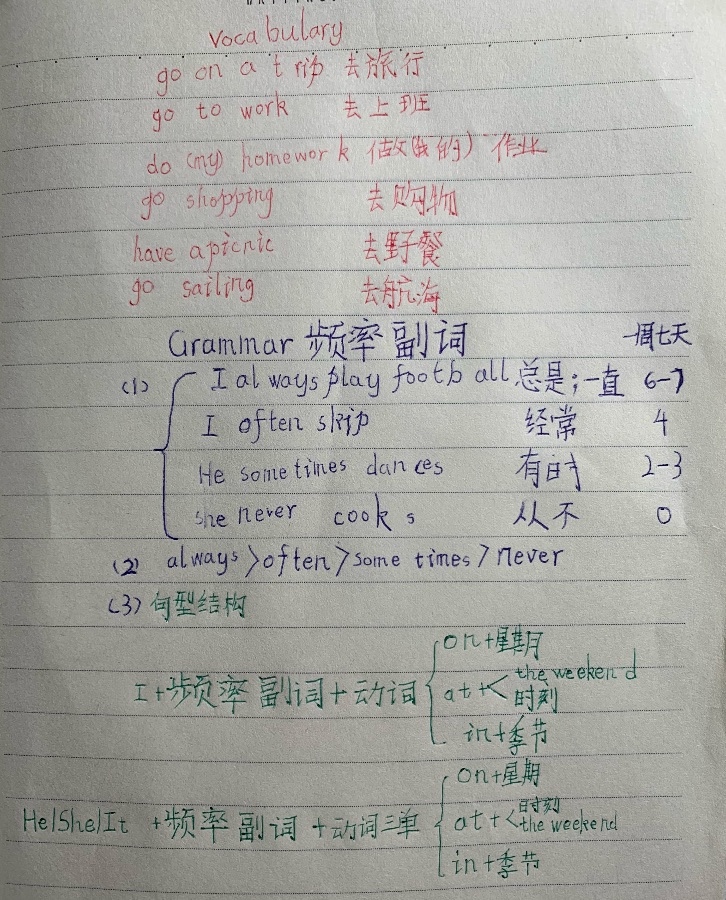 Vocabulary
go on a trip 去旅行
go to work 去上班
do (my) homework 做(我的)作业
go shopping 去购物
have a picnic 去野餐
go sailing 去航海
Grammar 频率副词 一周七天
(1) I always play football 总是;一直 6-7
I often skip 经常 4
He sometimes dances 有时 2-3
she never cooks 从不 0
(2) always>often>sometimes>never
(3) 句型结构
on+星期
I+频率副词+动词 at+< the weekend
时刻
in+季节
on+星期
He/She/It +频率副词+动词三单 at+< 时刻
the weekend
in+季节